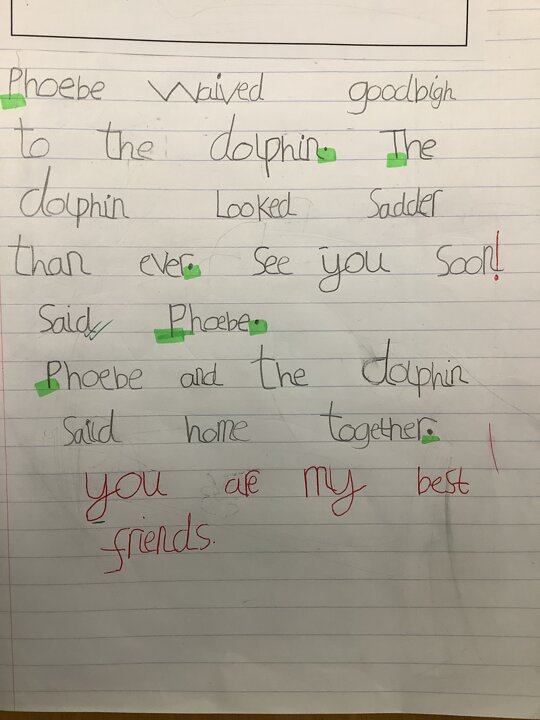 Phoebe waived goodbigh
to the dolphin. The
dolphin Looked Sadder
than ever. See you Soon!
Said Phoebe.
Phoebe and the dolphin
saild home together.
you are my best
friends.